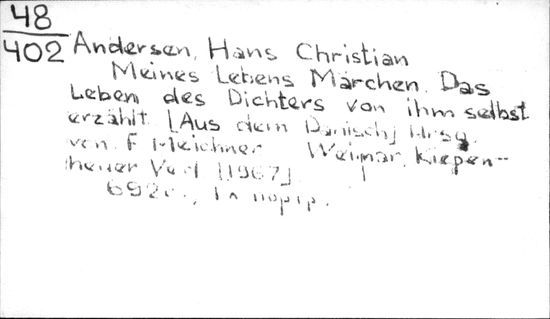 48
402
Andersen, Hans Christian
Meines Lebens Märchen. Das
Leben des Dichters von ihm selbst
erzählt [Aus dem Dänisch] Hrsg.
von F Meichner Weimar, Kiepen-
heuer Verl [1967]
692с., 1 л портр.